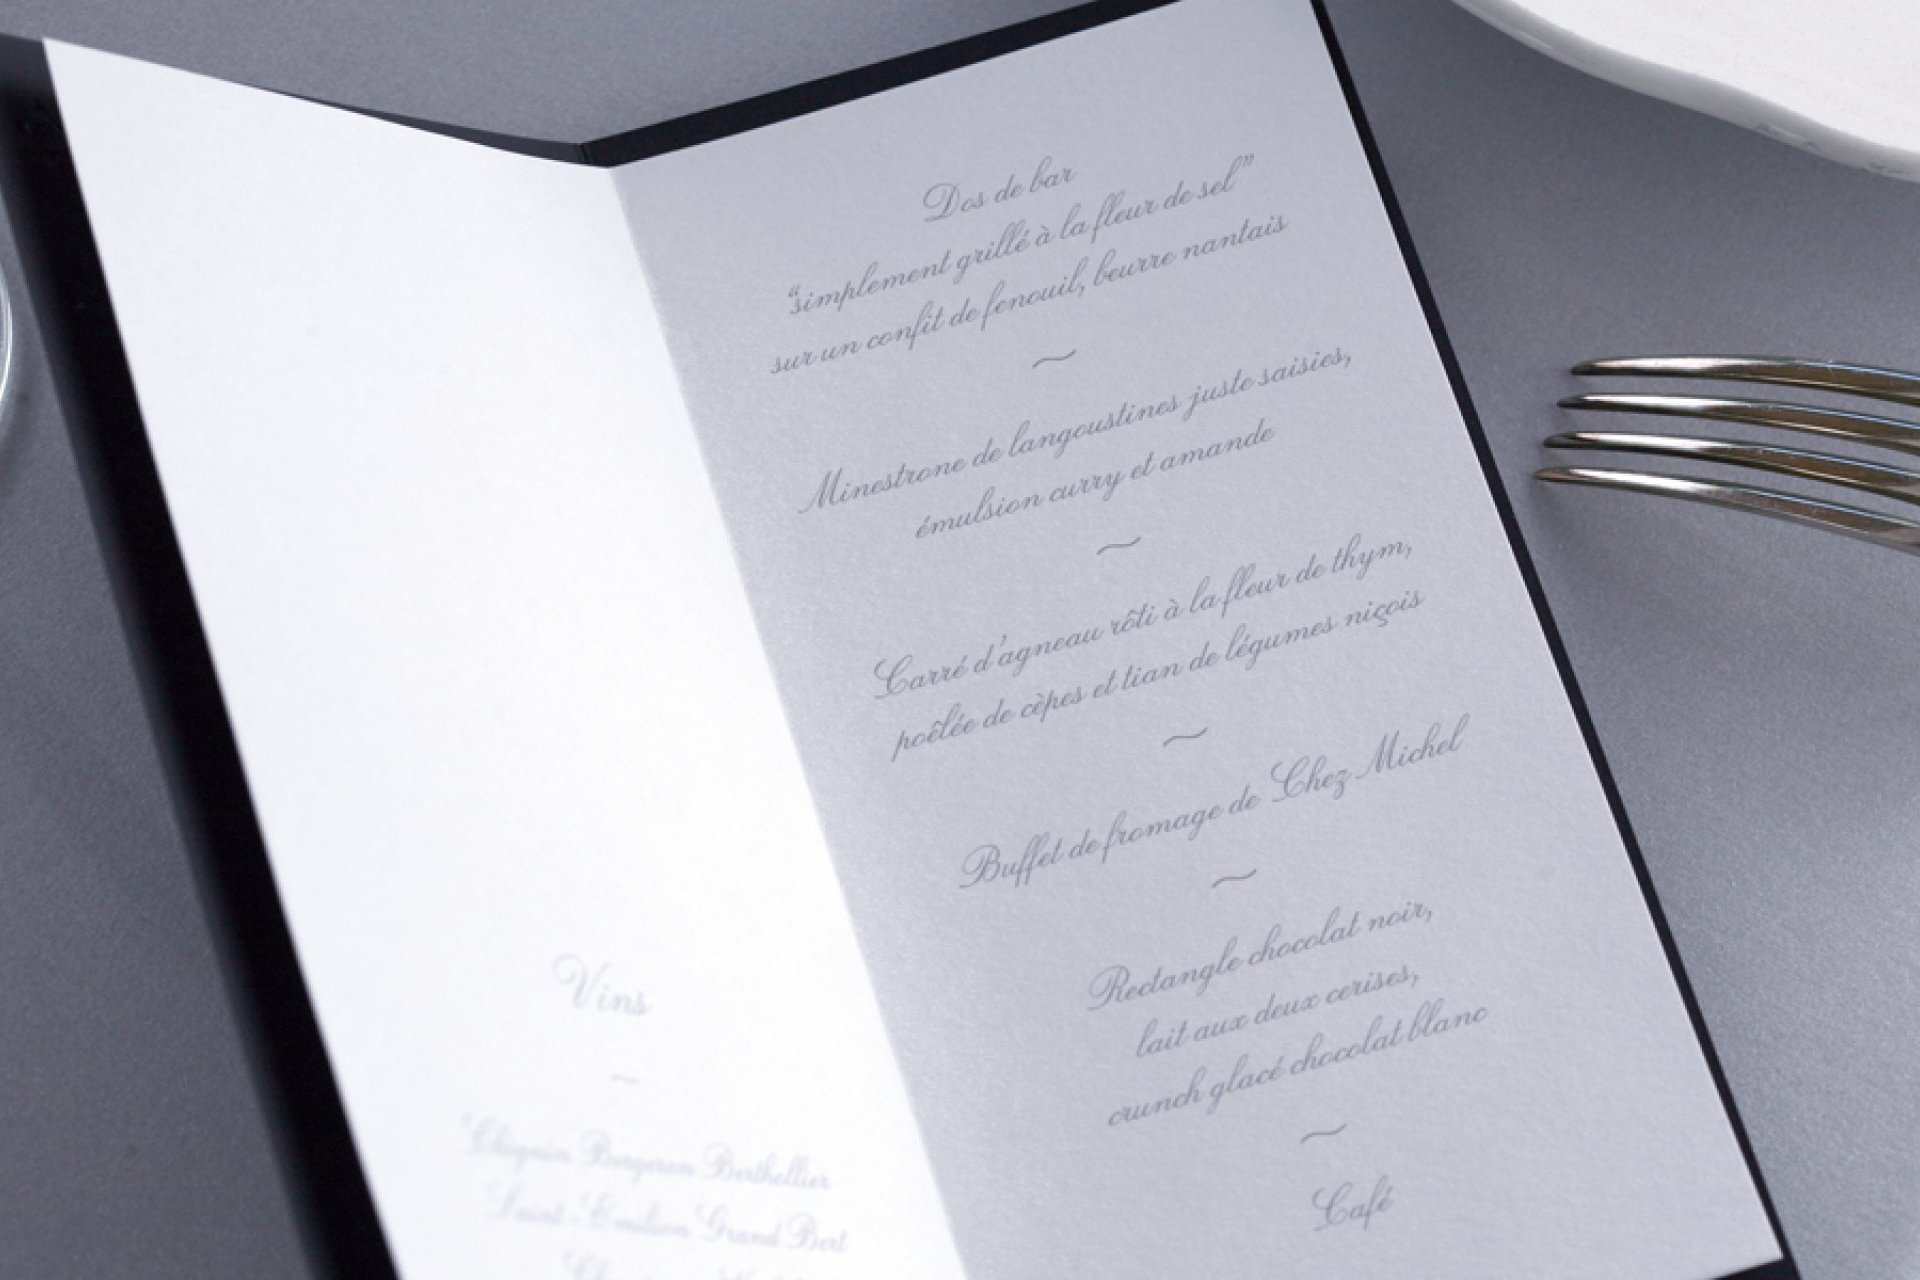 Vins
~
Chignin Bergeron Berthollier
Saint-Emilion Grand
Dos de bar
“simplement grillé à la fleur de sel”
sur un confit de fenouil, beurre nantais
~
Minestrone de langoustines juste saisies,
émulsion curry et amande
~
Carré d'agneau rôti à la fleur de thym,
poêlée de cèpes et tian de légumes niçois
~
Buffet de fromage de Chez Michel
~
Rectangle chocolat noir,
lait aux deux cerises,
crunch glacé chocolat blanc
~
Café